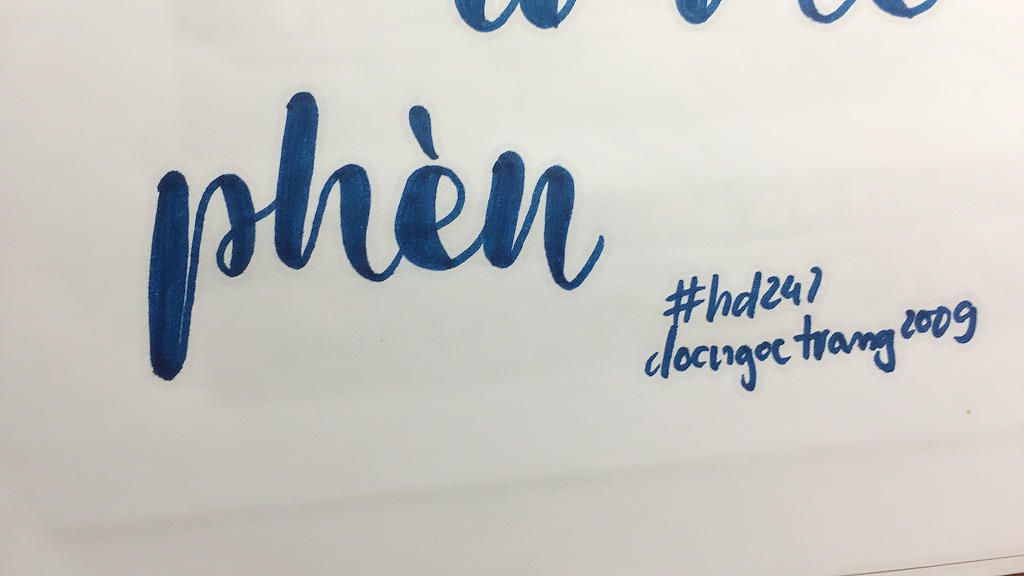 phèn
#hd247
docngoctrang2009